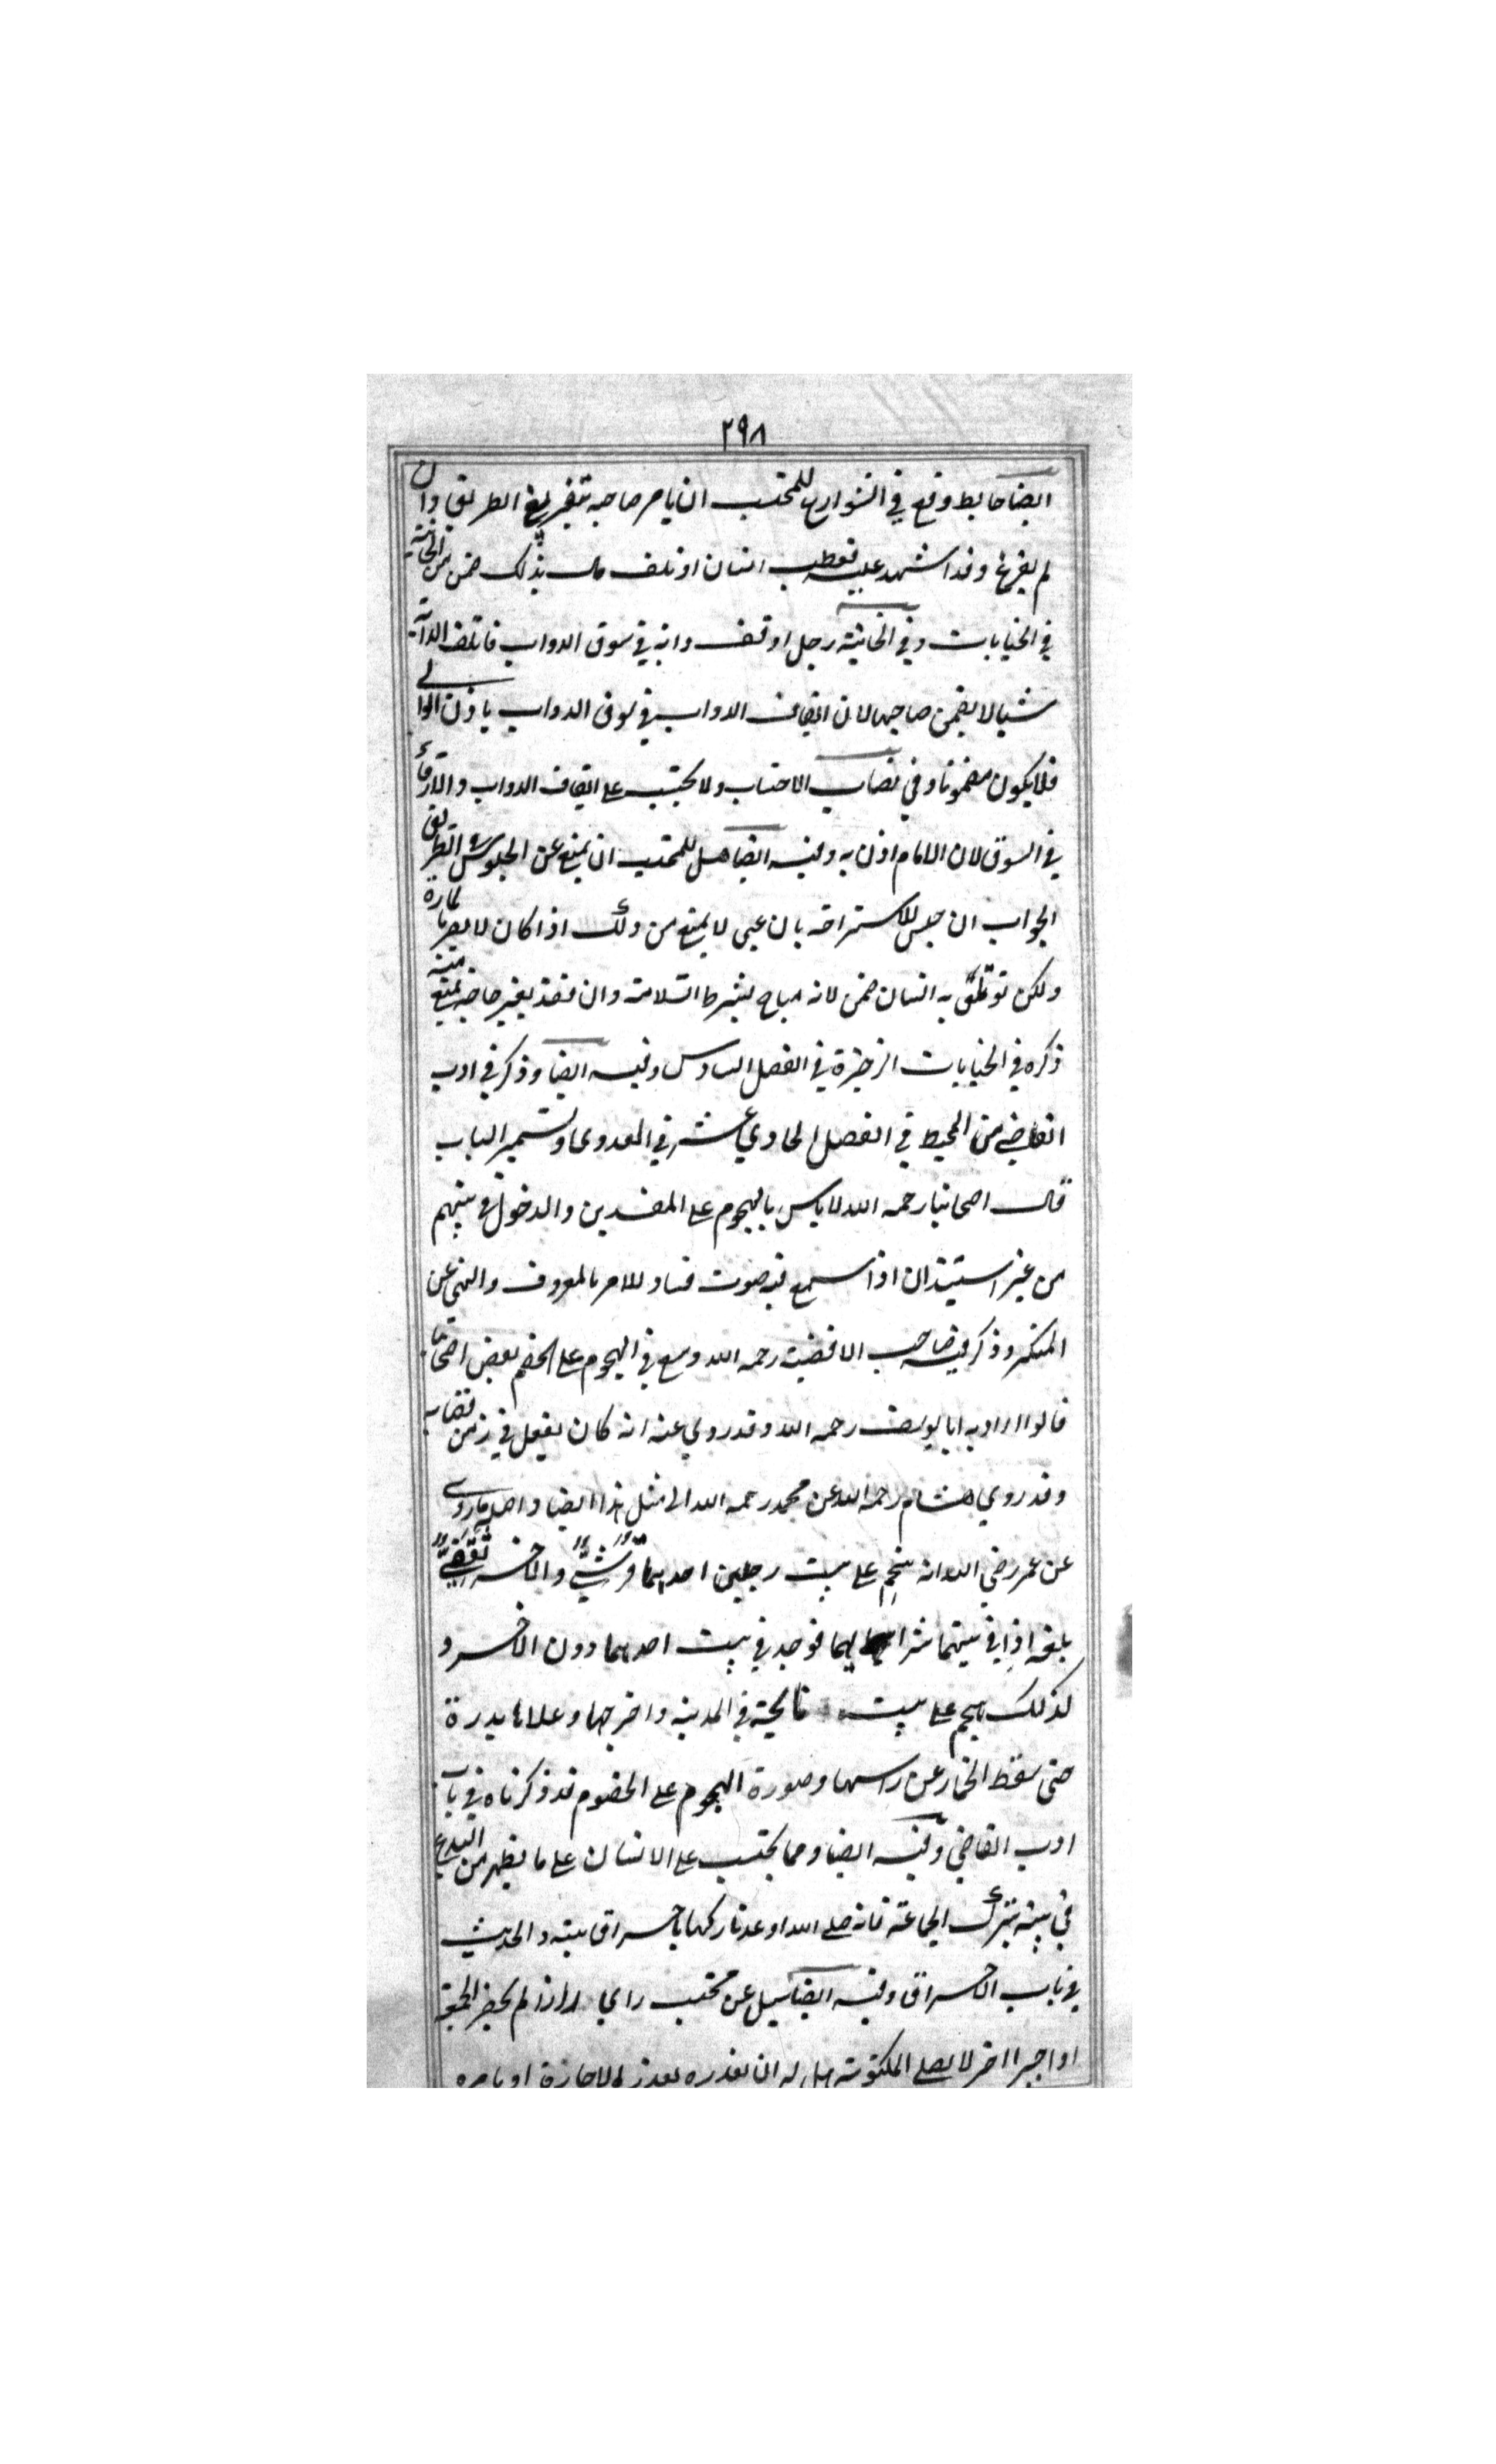 ٢٩٨
ايضا حايط وقع في الشوارع للمحتسب ان يامر صاحبه بتفريغ الطريق وان
لم يفرغ وقد اشهد عليه فعطب انسان او تلف مال بذلك ضمن من الخانية
في الجنايات وفي الخانية رجل اوقف دابة في سوق الدواب فاتلفت الدابة
شيا لا يضمن صاحبها لان ايقاف الدواب في سوق الدواب باذن الوالي
فلا يكون مضمونا وفي نصاب الاحتساب ولا يحتسب على ايقاف الدواب والارقاء
في السوق لان الامام اذن به وفيه ايضا هل للمحتسب ان يمنع عن الجلوس على الطريق
الجواب ان جلس للاستراحة بان عيي لا يمنع من ذلك اذا كان لا يضر بالمارة
ولكن لو تعلق به انسان ضمن لانه مباح بشرط السلامة وان قعد بغير حاجة يمنع منه
ذكره في الجنايات الذخيرة في الفصل السادس وفيه ايضا وذكر في ادب
القاضي من المحيط في الفصل الحادي عشر في العدوى وتسمير الباب
قال اصحابنا رحمه الله لا باس بالهجوم على المفسدين والدخول في بيتهم
من غير استيذان اذا سمع فيه صوت فساد للامر بالمعروف والنهي عن
المنكر وذكر فيه صاحب الاقضية رحمه الله وسع في الهجوم على الخصم بعض اصحابنا
قالوا اراد به ابا يوسف رحمه الله وقد روي عنه انه كان يفعل في زمن قضايه
وقد روي هشام رحمه الله عن محمد رحمه الله الى مثل هذا ايضا واصله ما روى
عن عمر رضي الله انه هجم على بيت رجلين احدهما قرشي والاخر ثقفي
بلغه ان في بيتهما شرابا لهما فوجد في بيت احدهما دون الاخر و
كذلك هجم على بيت نايحة في المدينة واخرجها وعلاها بدرة
حتى سقط الخمار عن راسها وصورة الهجوم على الخصوم قد ذكرناه في باب
ادب القاضي وفيه ايضا ومما يحتسب على الانسان على ما يظهر من البدع
في بيته بترك الجماعة فانه صلى الله اوعد تاركها باحراق بيته والحديث
في باب الاحراق وفيه ايضا سيل عن محتسب راي اذا لم يحضر الجمعة
او اجيرا اخر لا يصلي المكتوبة هل له ان يعذره بعذر الاجازة او يامره